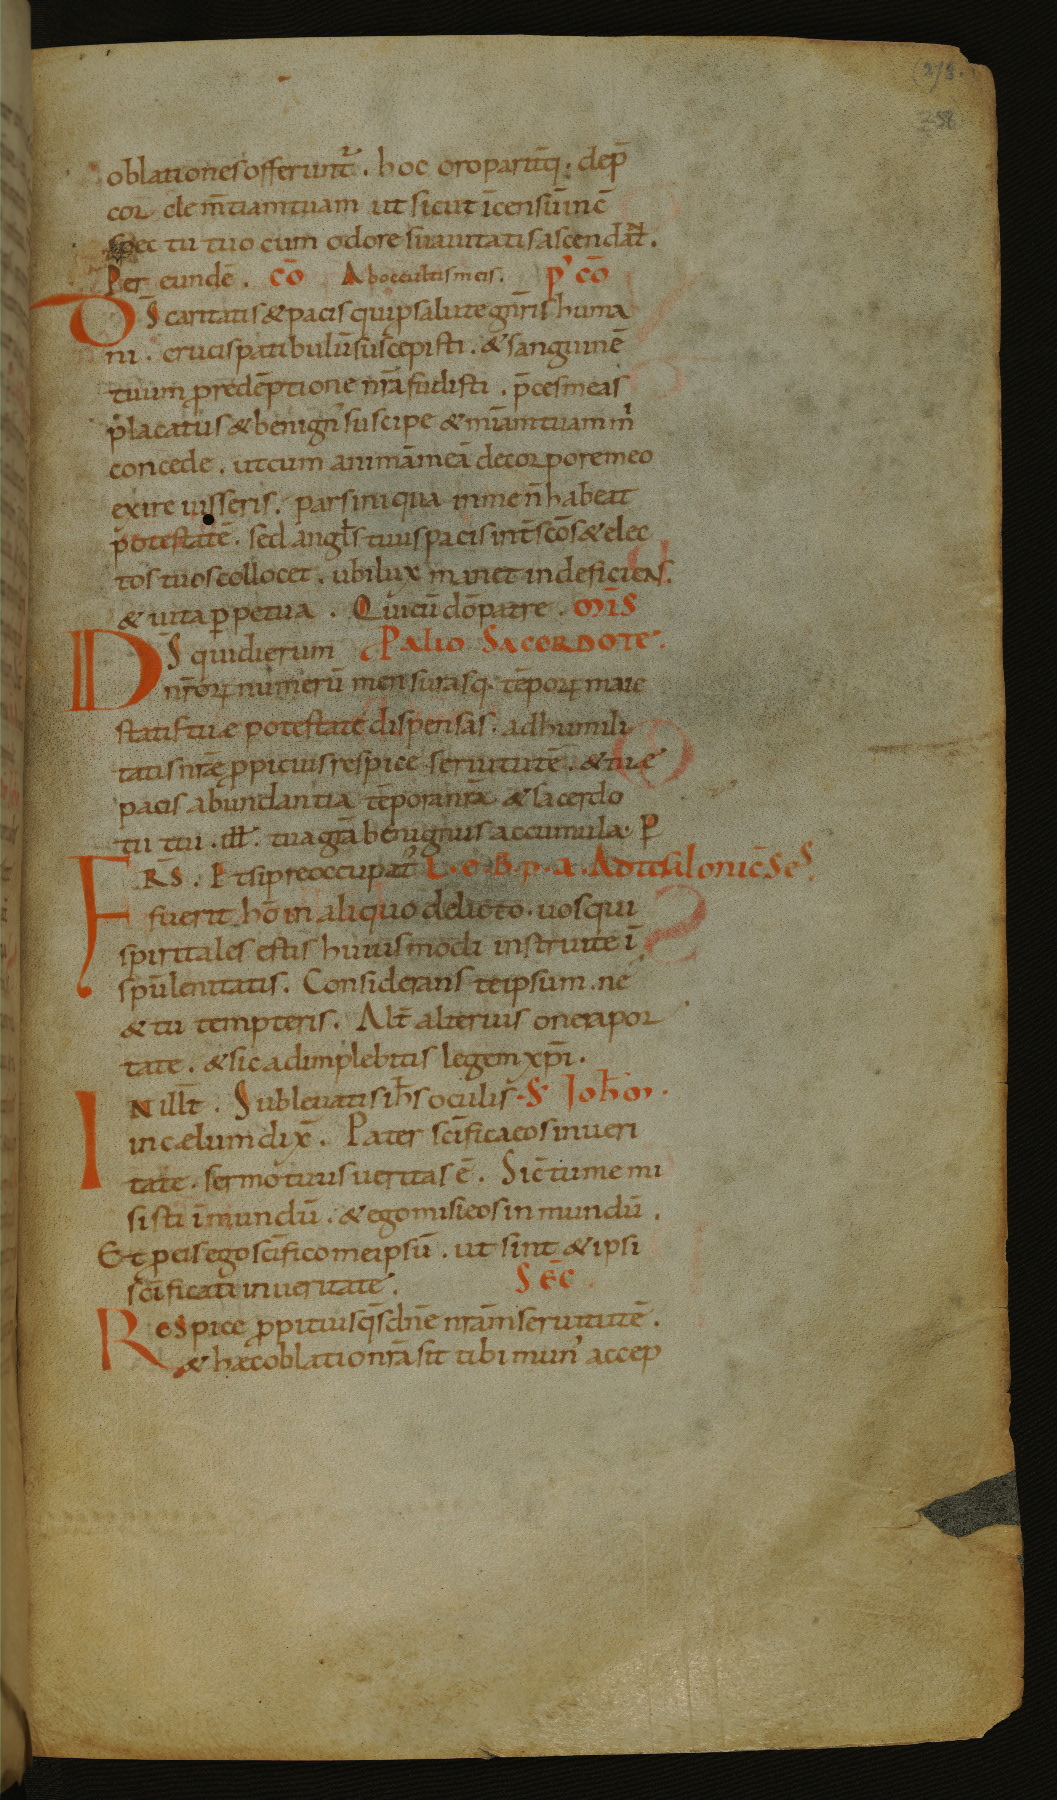 (273.
258
oblationes offerunt᷑. hoc oro pariт̄q; dep̄
cor clem̄tiam tuam ut sicut īcensū īnc̄
spec tu tuo cum odore suauitatis ascendat̄.
Per eundē. cō Ab occultis meis. p' cō
D̄s caritatis & pacis qui p salute gn̄ris huma
ni. crucis patibulū suscepisti. & sanguinē
tuum p redēptione nr̄a fudisti. p̄ces meas
placatus & benign' suscipe & mīam tuam m̄
concede. ut cum animā meā de corpore meo
exire iusseris. pars iniqua in me n̄ habeat
potestatē. sed angl̄s tuus pacis int̄ sc̄os & elec
tos tuos collocet. ubi lux manet indeficiens.
& uita ꝑpetua. Qui cū dō patre. mīs
D̄s qui dierum Palio Sacerdote.
nr̄orꝝ numerū mensurasq; tēporꝝ maie
statis tuæ potestate dispensas. ad humili
tatis nr̄ę ꝓpicius respice seruitutē. & tuę
pacis abundantia tēpora nr̄a & sacerdo
tu tui. ill̄. tua grā benignus accumula. P
FR̄S. Et si preoccupat᷑ L. e. B. p. a. Ad tesalonicēses
fuerit hō in aliquo delicto. uos qui
spiritales estis huiusmodi instruite ī
spū lenitatis. Considerans teipsum. ne
& tu tempteris. Alt̄ alterius onera por
tate. & sic adimplebitis legem xp̄i.
IN ill̄t. Subleuatis ih̄s oculis. S Joh̄m.
in cælum dix̄. Pater sc̄ifica eos in ueri
tate. sermo tuus ueritas ē. Sic̄ tu me mi
sisti ī mundū. & ego misi eos in mundū.
Et ꝓ eis ego sc̄ifico meipsū. ut sint & ipsi
sc̄ificati in ueritate. SEC̄
Respice ꝓpitius q̄s dn̄e nr̄am seruitutē.
& hæc oblatio nr̄a sit tibi mun' accep